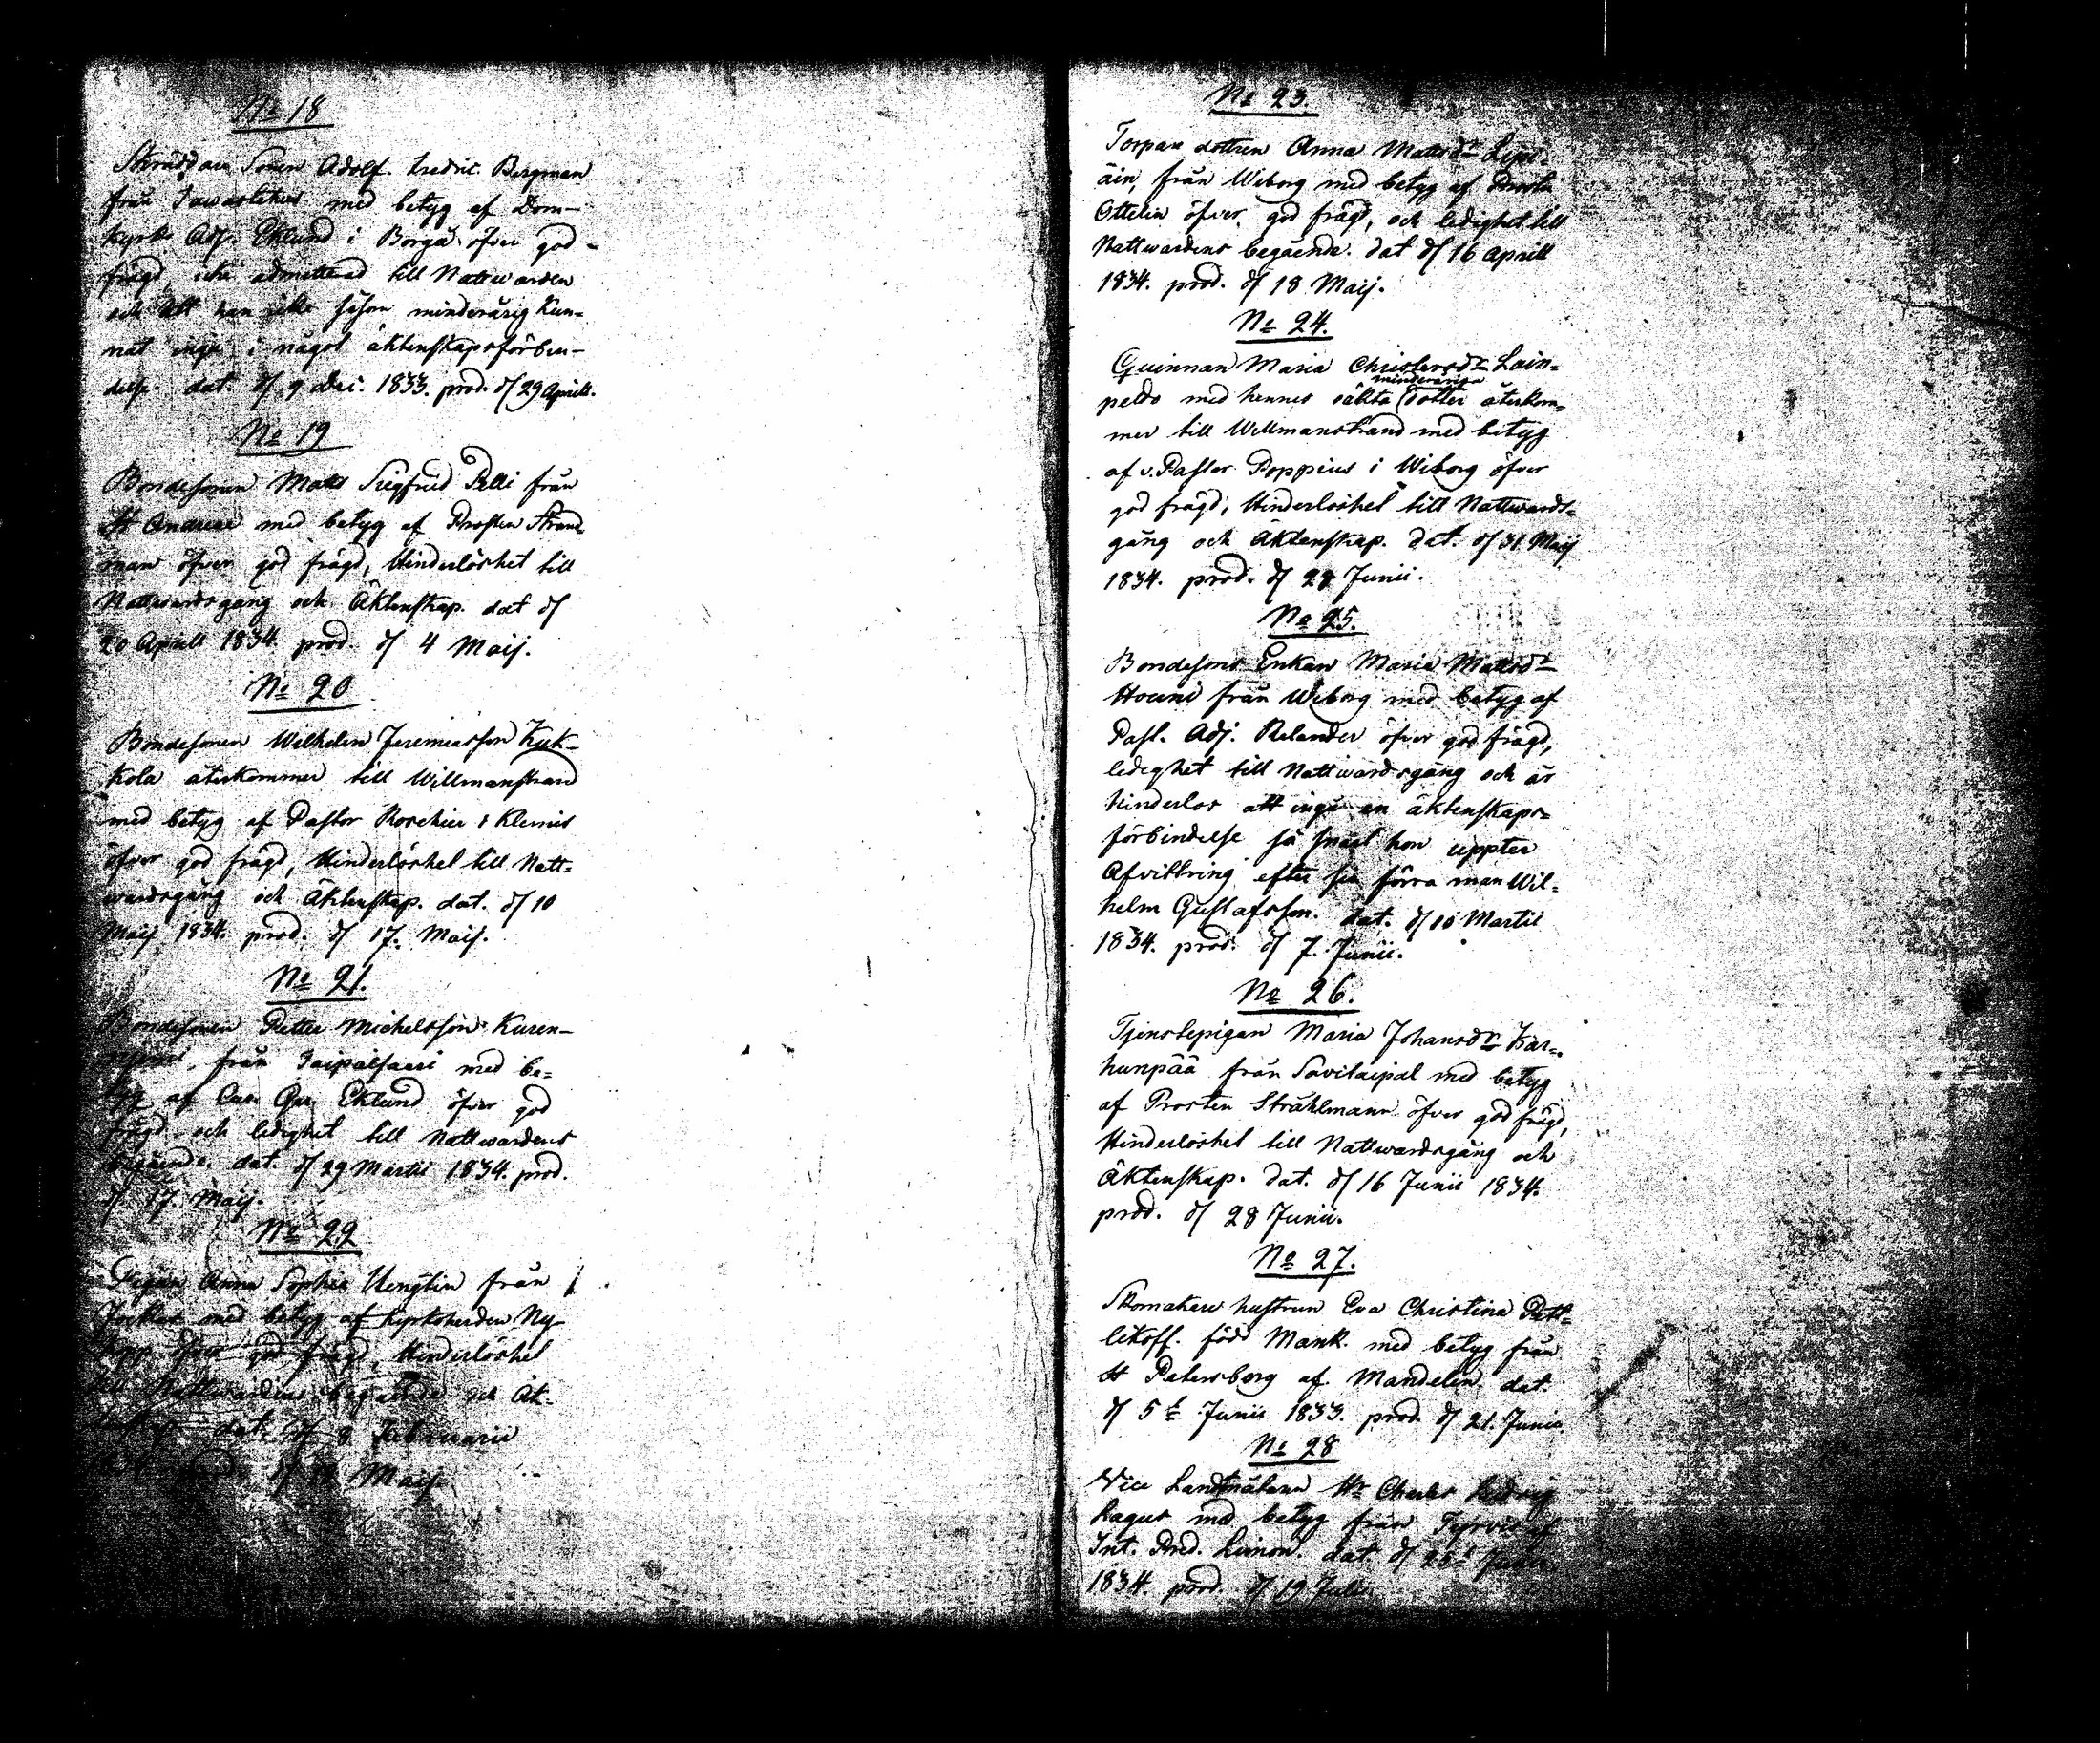 No 18
Skräddare Sonen Adolf Fredric Bergman
från Tawastehus med betyg af Dom-
kyrk Adj. Eklund i Borgå öfver god
frägd, icke admitterad till Nattwarden
och att han icke såsom minderårig kun-
nat ingå i något äktenskapsförbin-
delse. dat. d/ 9 Dec. 1833. prod. d/ 29 Aprill.
No 19
Bondesonen Matts Siegfrid Pelli från
St Andreae med betyg af Prosten Strand-
man öfver god frägd, Hinderlöshet till
Nattwardsgång och Äktenskap. dat d/
20 Aprill 1834. prod. d/ 4 Maij.
No 20
Bondesonen Wilhelm Jeremiasson Kuk-
kola återkommer till Willmanstrand
med betyg af Pastor Roschier i Klemis
öfver god frägd, Hinderlöshet till Natt-
wardsgång och Äktenskap. dat. d/ 10
Maij 1834. prod. d/ 17. Maij.
No 21.
Bondesonen Petter Michelsson Kuren-
från Taipalsaari med be-
tyg af Cur. Gur. Eklund öfver god
frägd och ledighet till Nattwardens
begående. dat. d/ 29 Martii 1834. prod.
d/ 17. Maij.
No 22
Pigan Anna Sophia Hengtin från
Jockas med betyg af Kyrkoherden Ny-
kopp öfver god frägd, Hinderlöshet
till Nattwardens begående och Äk-
dat. d/ 8 Februarii
d/ Maij.
No 23.
Torpare dottren Anna Mattsdr Lipi-
äin, från Wiborg med betyg af Prosten
Ottelin öfver god frägd, och ledighet till
Nattwardens begående. dat d/ 16 Aprill
1834. prod. d/ 18 Maij.
No 24.
Quinnan Maria Christersdr Lain-
peldo med hennes oäkta minderåriga dotter återkom-
mer till Willmanstrand med betyg
af v. Pastor Poppius i Wiborg öfver
god frägd, Hinderlöshet till Nattwards-
gång och Äktenskap. dat. d/ 31 Maij
1834. prod. d/ 28 Junii.
No 25.
Bondesons Enkan Maria Mattsdr
Houni från Wiborg med betyg af
Past. Adj. Relander öfver god frägd,
ledighet till Nattwardsgång och är
hinderlös att ingå en äktenskaps-
förbindelse så snart hon uppter
Afvittring efter sin förra man Wil-
helm Gustafsson. dat. d/ 10 Martii
1834. prod. d/ 7. Junii.
No 26.
Tjenstepigan Maria Johansdr Kar-
hunpää från Savitaipal med betyg
af Prosten Stråhlmann öfver god frägd,
Hinderlöshet till Nattwardsgång och
Äktenskap. dat. d/ 16 Junii 1834.
prod. d/ 28 Junii.
No 27.
Skomakare hustrun Eva Christina Pett-
likoff. född Mank. med betyg från
St Petersborg af Mandelin dat.
d/ 5te Junii 1833. prod. d/ 21. Junii.
No 28
Vice Landtmätaren Hr Charles Ludvig
Lagus med betyg från Tyrvis af
Int. Pred. Limon. dat. d/ 25te Junii
1834. prod. d/ 19 Julii